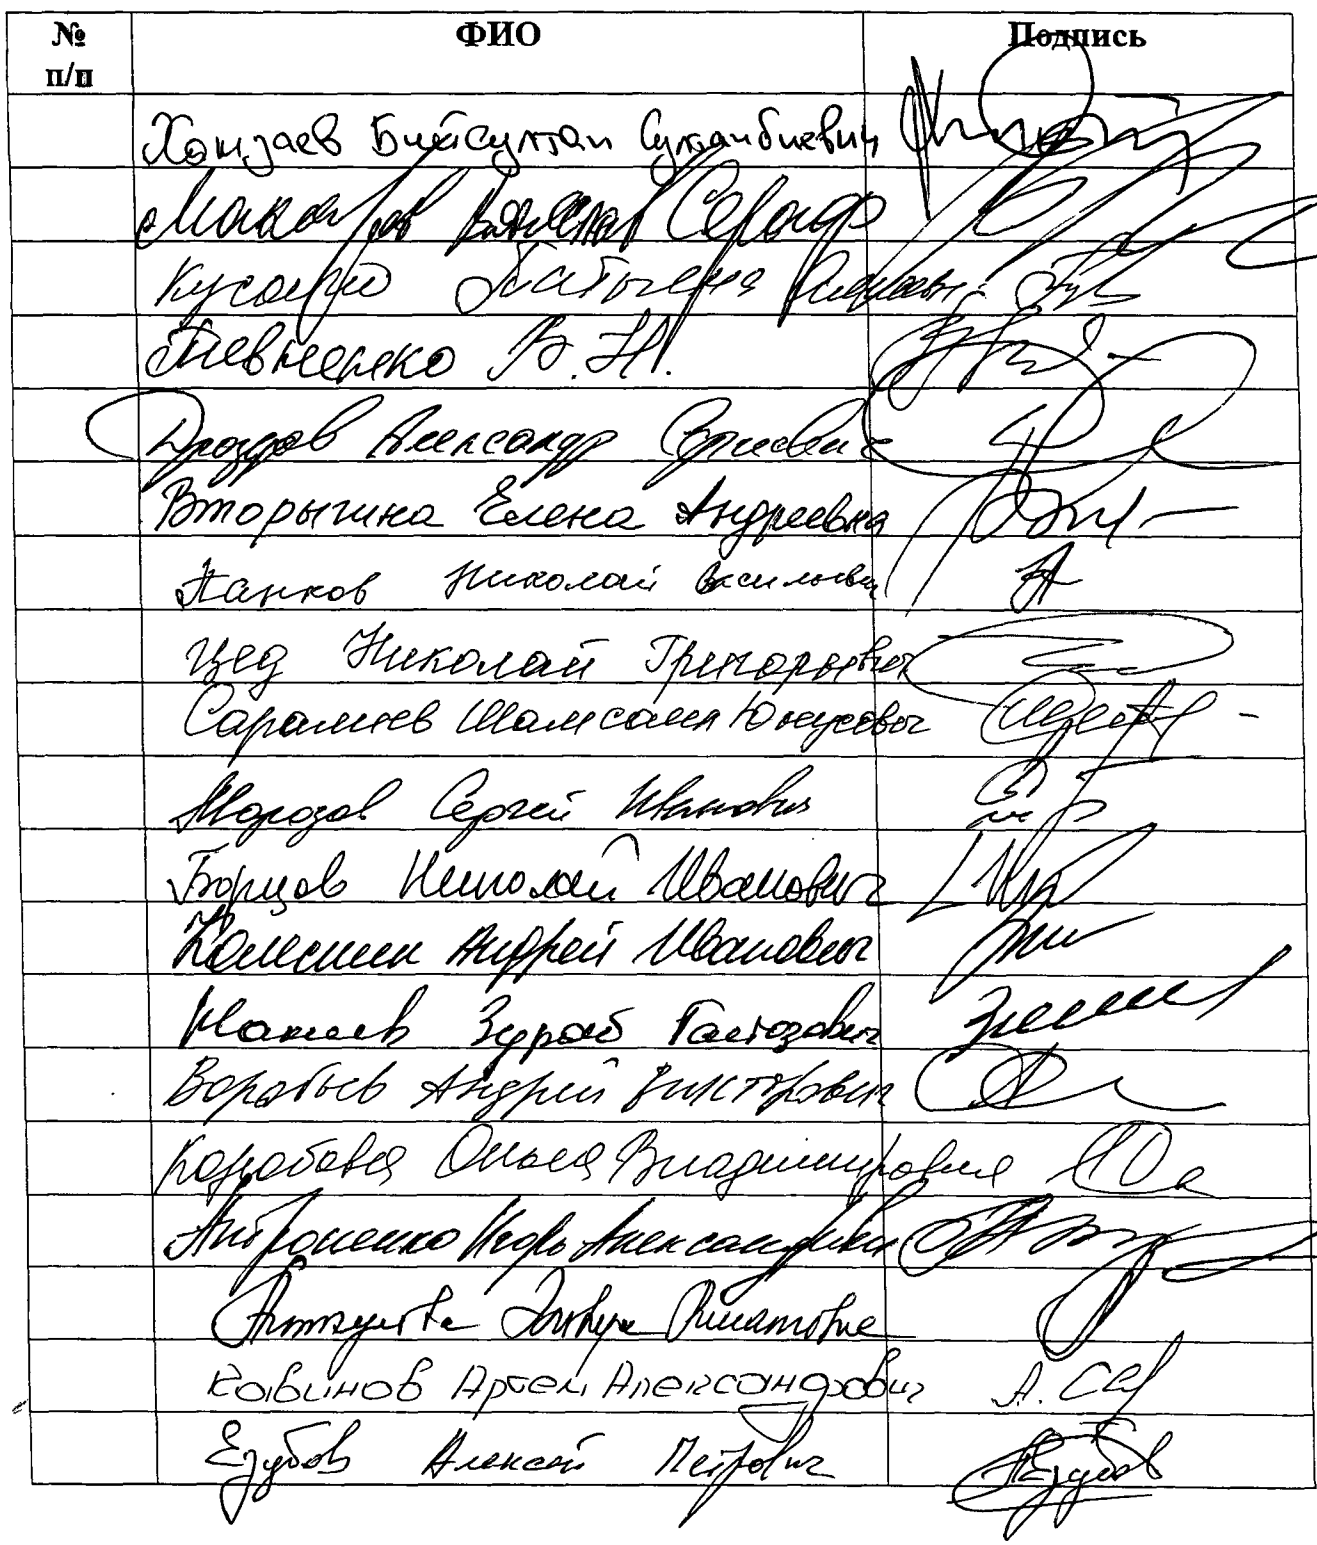 № п/п ФИО Подпись
Хамзаев Бийсултан Султанбиевич
Макаров Вячеслав
Кусайко Татьяна
Пивненко В.Н.
Дроздов Александр
Вторыгина Елена Андреевна
Панков Николай Васильевич
Цед Николай Григорьевич
Саралиев Шамсаил Юнусович
Морозов Сергей Иванович
Борцов Николай Иванович
Колесник Андрей Иванович
Макиев Зураб Гайозович
Воробьев Андрей Викторович
Коробова Ольга Владимировна
Антропенко Игорь Александрович
Аиткулова Эльвира Ринатовна
Кавинов Артем Александрович А.
Езубов Алексей Петрович Езубов